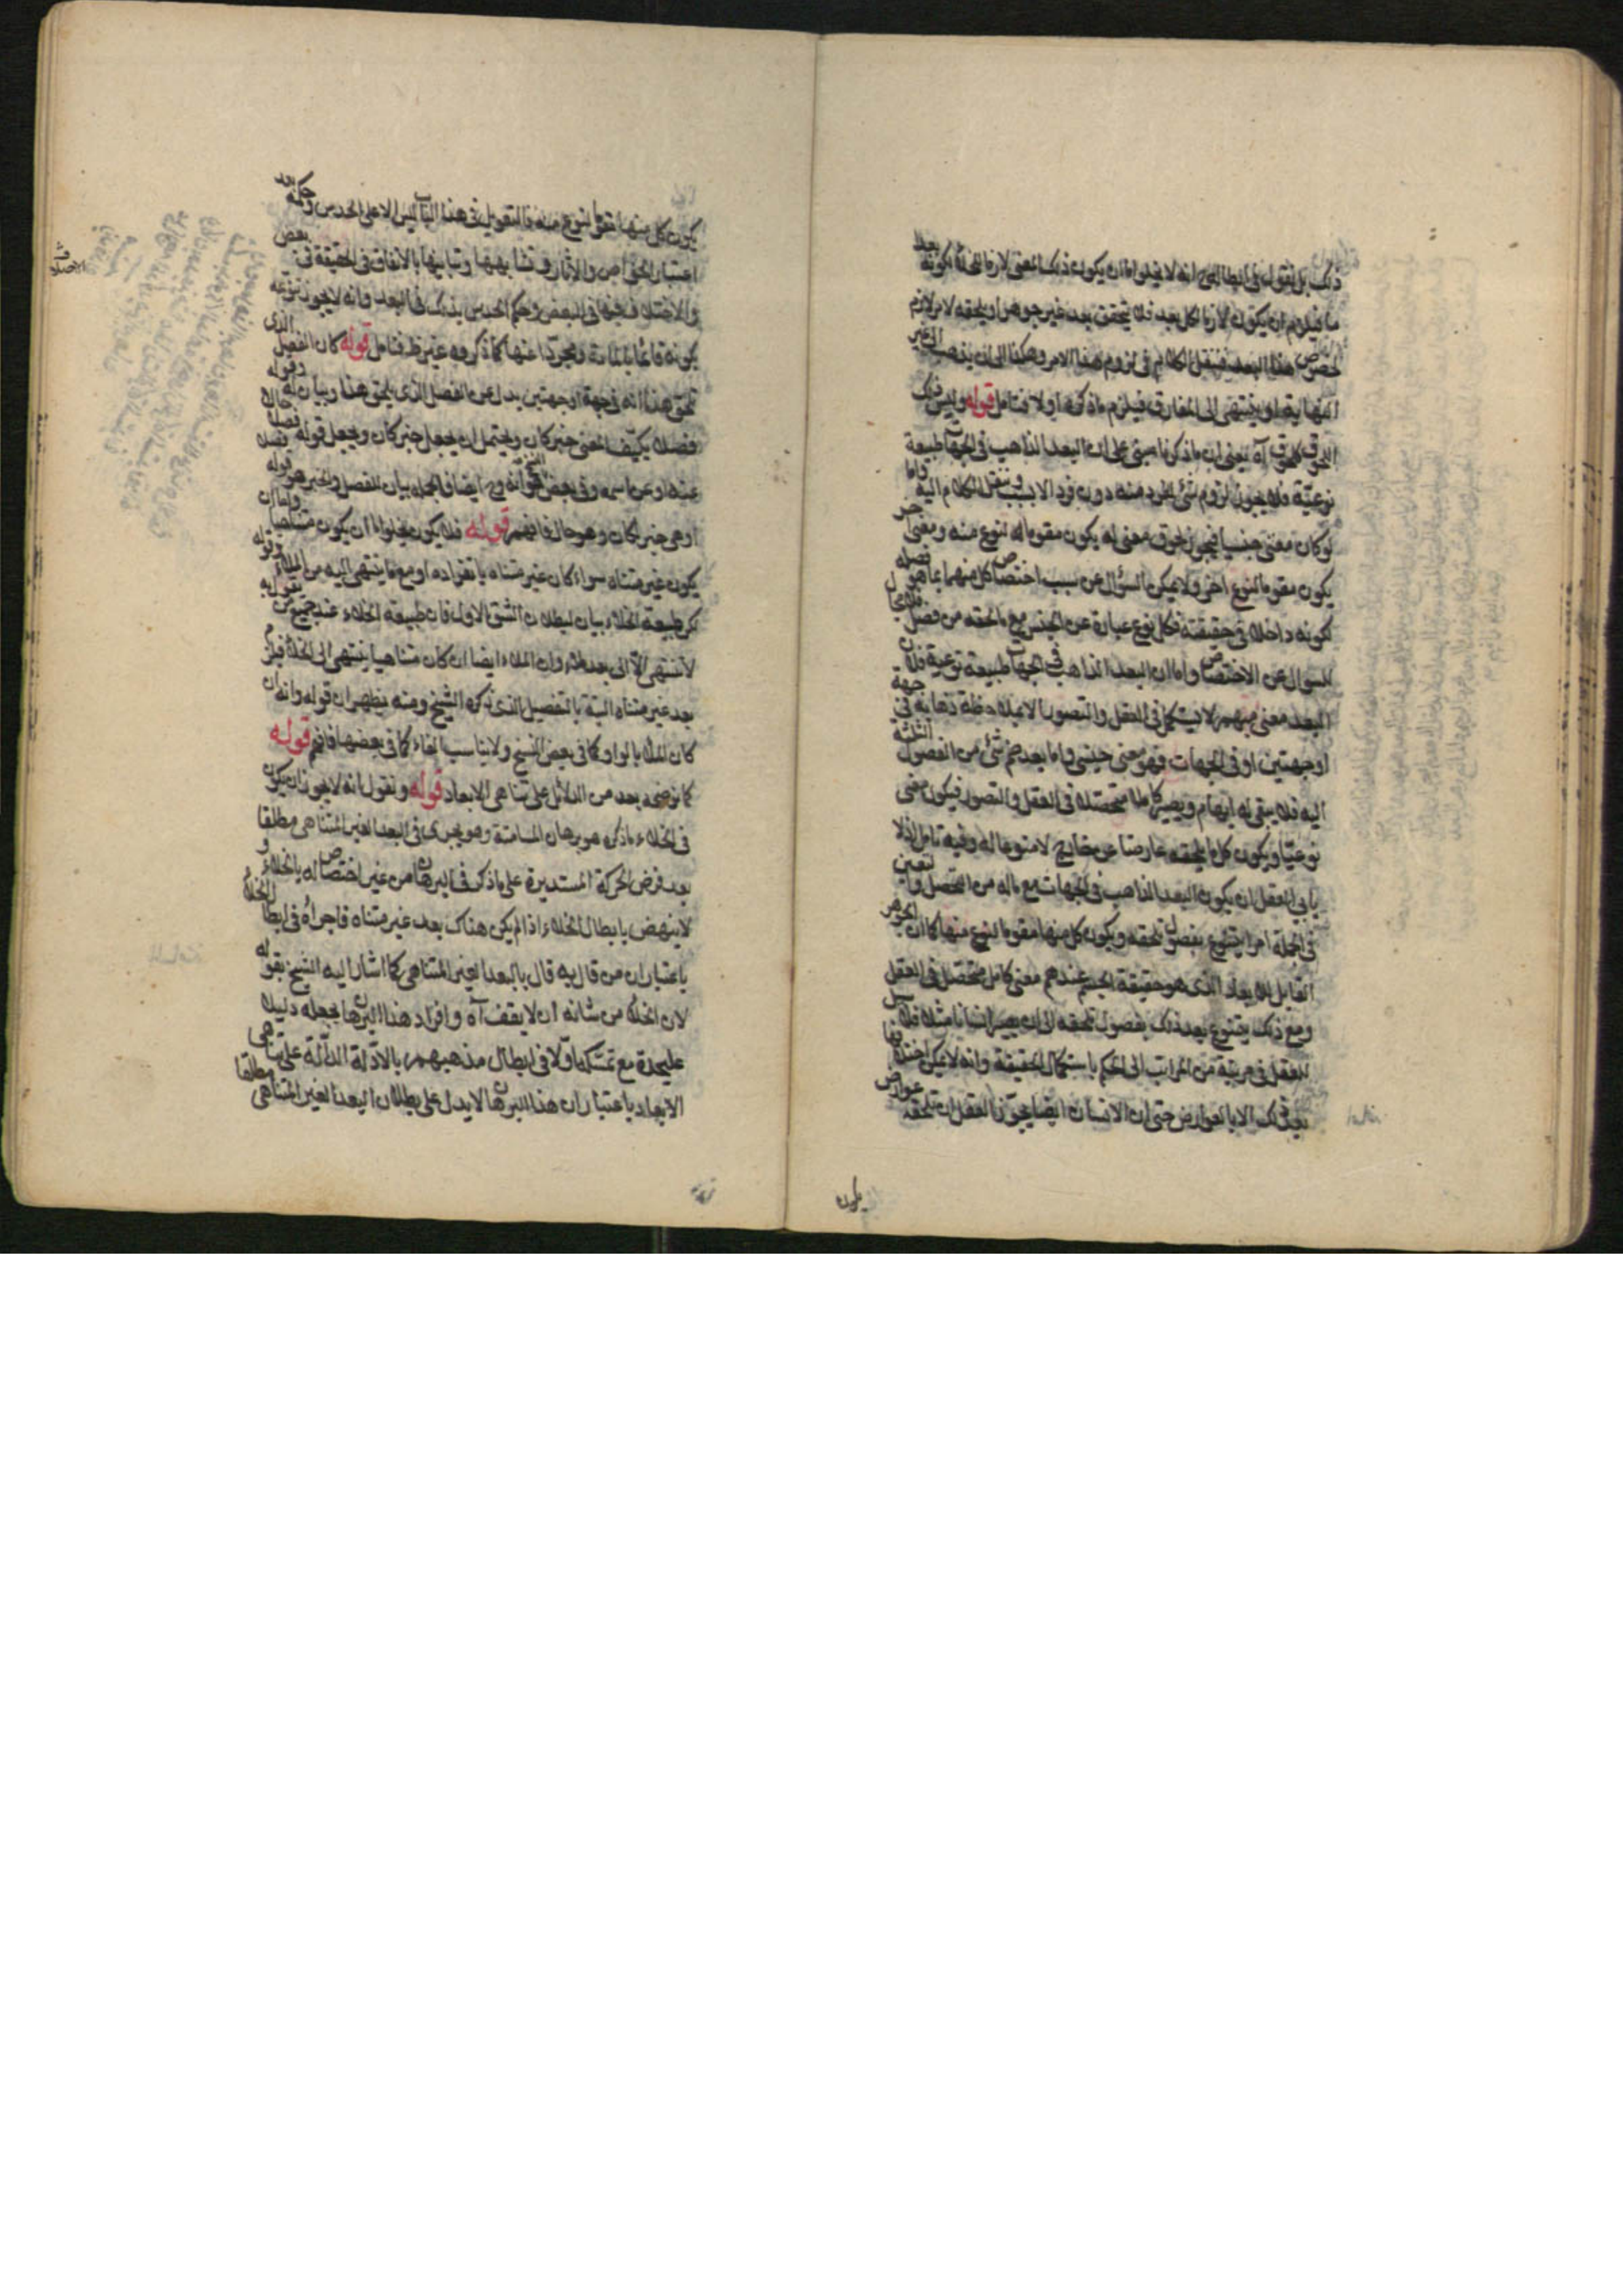 ذلك بل نقول في ابطالهم انه لا يخلو اما ان يكون ذلك المعنى لازما للخلأ لكونه بعد
ما فيلزم ان يكون لازما لكل بعد فلا يتحقق بعد غير جوهر او يلحقه لامر لازم
لخصوص هذا البعد فينقل الكلام في لزوم هذا الامر وهكذا الى ان يذهب الى غير
النهاية او ينتهى الى المفارق فيلزم ما ذكره اولا فتامل قوله وليس ذلك
اللحوق كلحوق آه يعني ان ما ذكرنا مبنى على ان البعد الذاهب في الجهات طبيعة
نوعيّة فلا يجوز لزوم شئ لفرد منه دون فرد الا بسبب وينقل الكلام اليه واما
لو كان معنى جنسيا فيجوز لحوق معنى له يكون مقوما له لنوع منه ومعنى آخر
يكون مقوما لنوع اخر ولا يمكن السؤال عن سبب اختصاص كل منهما بما هو فصله
لكونه داخلا في حقيقته فكل نوع عبارة عن الجنس مع ما لحقه من فصل فلا مجال
للسؤال عن الاختصاص واما ان البعد الذاهب في الجهات طبيعة نوعية فلان
البعد معنى مبهم لا يستكمل في العقل والتصور الا بملاحظة ذهابه في جهة
او جهتين او في الجهات فهو معنى جنسي واما بعد ضم شئ من الفصول الثلثة
اليه فلا يبقى له ابهام ويصير كاملا متحصلا في العقل والتصور فيكون معنى
نوعيّا ويكون كل ما يلحقه عارضا عن خارج لا منوعا له وفيه تامل اذ لا
يابى العقل ان يكون البعد الذاهب في الجهات مع ماله من التحصل والتعين
في الجملة امرا يتنوع بفصول تلحقه ويكون كل منها مقوما لنوع منها كما ان الجوهر
القابل للابعاد الذى هو حقيقة الجسم عندهم معنى كامل متحصل في العقل
ومع ذلك يتنوع بعد ذلك بفصول تلحقه الى ان يصير انسانا مثلا فلا سبيل
للعقل في مرتبة من المراتب الى الحكم باستكمال الحقيقة وانه لا يمكن اختلافها
بعد ذلك الا بالعوارض حتى ان الانسان ايضا يجوّز العقل ان تلحقه عوارض
يكون
يكون كل منها مقوما لنوع منه فالتعويل في هذا الباب ليس الا على الحدس وحكمه بعد
اعتبار الخواص والآثار وتشابهها وتباينها بالاتفاق في الحقيقة في بعض
والاختلاف فيها في البعض وحكم الحدس بذلك في البعد وانه لا يجوز تنوعه
بكونه قائما بالمادة ومجردا عنها كما ذكروه غير ظ فتامل قوله كان الفصل الذى
يلحق هذا انه في جهة او جهتين بدل عن الفصل الذى يلحق هذا وبيان له وقوله
فصلا يكيّف المعنى خبر كان ويحتمل ان يجعل خبر كان ويجعل قوله فصلا حالا
عنه او عن اسمه وفي بعض النسخ هو انه وح ايضا فالجملة بيان للفصل والخبر هو قوله فصلا
او هي خبر لكان وهو حال فافهم قوله فلا يكون يخلو اما ان يكون متناهيا واما ان
يكون غير متناه سواء كان غير متناه بانفراده او مع ما ينتهى اليه من الملاء وقوله
لكن طبيعة الخلاء بيان لبطلان الشق الاول فان طبيعة الخلاء عند جميع من يقول به
لا تنتهى الا الى بعد ملاء وان الملاء ايضا ان كان متناهيا ينتهى الى الخلاء فيلزم
بعد غير متناه البتة بالتفصيل الذى ذكره الشيخ ومنه يظهر ان قوله وانه ان
كان الملأ بالواو كما في بعض النسخ ولا يناسب الفاء كما في بعضها فافهم قوله
كما نوضحه بعد من الدلائل على تناهى الابعاد قوله ونقول انه لا يجوز ان يكون
في الخلاء ما ذكره هو برهان المسامتة وهو يجرى في البعد الغير المتناهى مطلقا
بعد فرض الحركة المستديرة على ما ذكر في البرهان من غير اختصاص له بالخلاء و
لا ينهض بابطال الخلاء اذا لم يكن هناك بعد غير متناه فاجراؤه في ابطال الخلأ
باعتبار ان من قال به قال بالبعد الغير المتناهى كما اشار اليه الشيخ بقوله
لان الخلأ من شانه ان لا يقف آه وافراد هذا البرهان بجعله دليلا
عليحدة مع تمسّكه اوّلا في ابطال مذهبهم بالادّلة الدالّة على تناهى
الابعاد باعتبار ان هذا البرهان لا يدل على بطلان البعد الغير المتناهى مطلقا